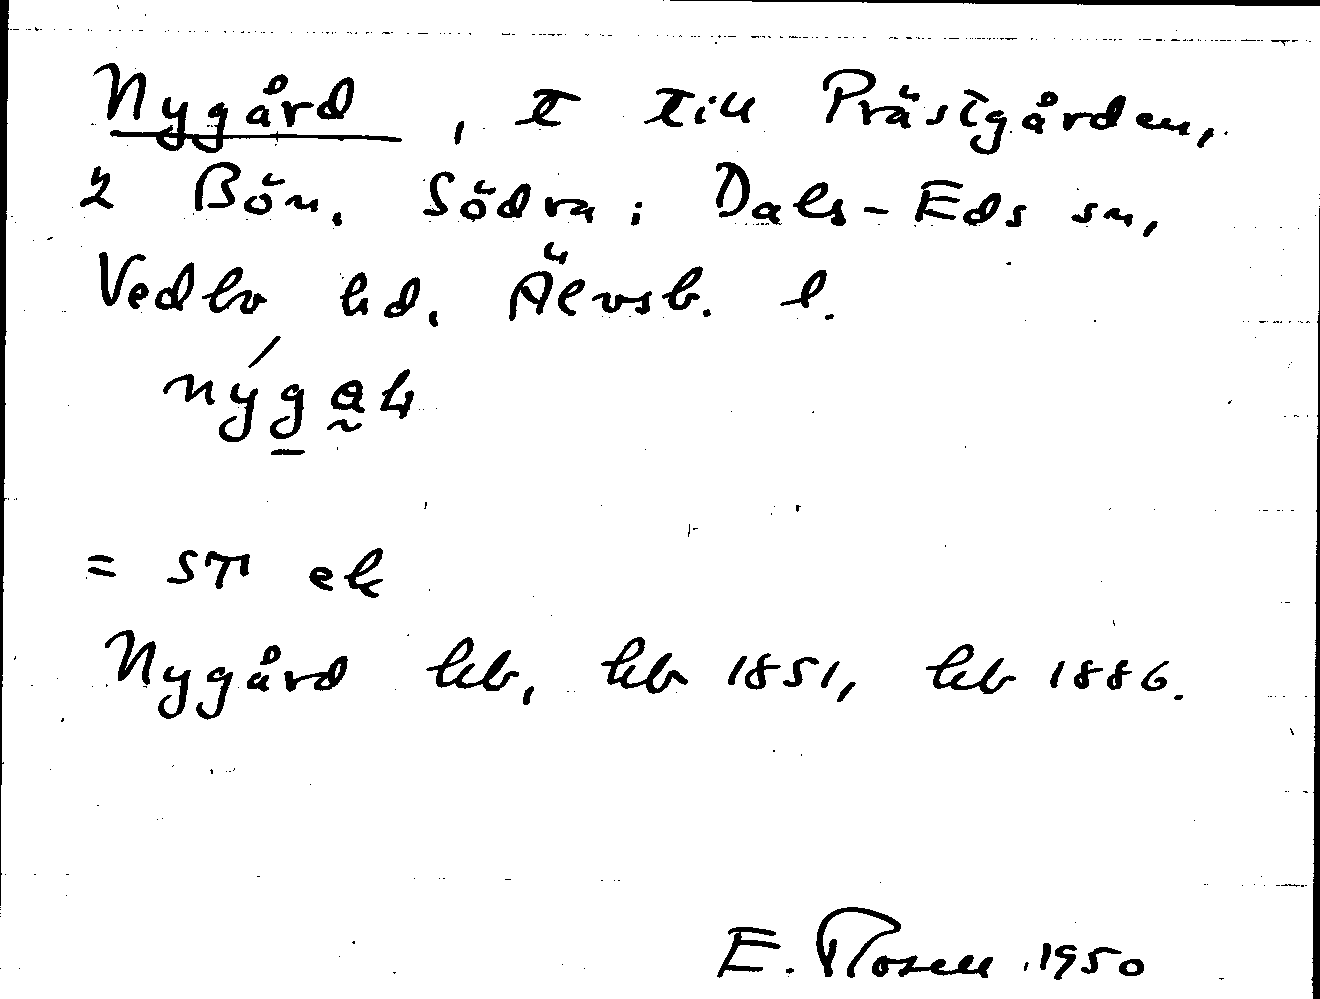 Nygård, t till Prästgården,
2 Bön, Södra i Dals-Eds sn,
Vedbo hd, Älvsb. l.
= ST ek
Nygård hb, hb 1851, hb 1886.
E. Rosell 1950